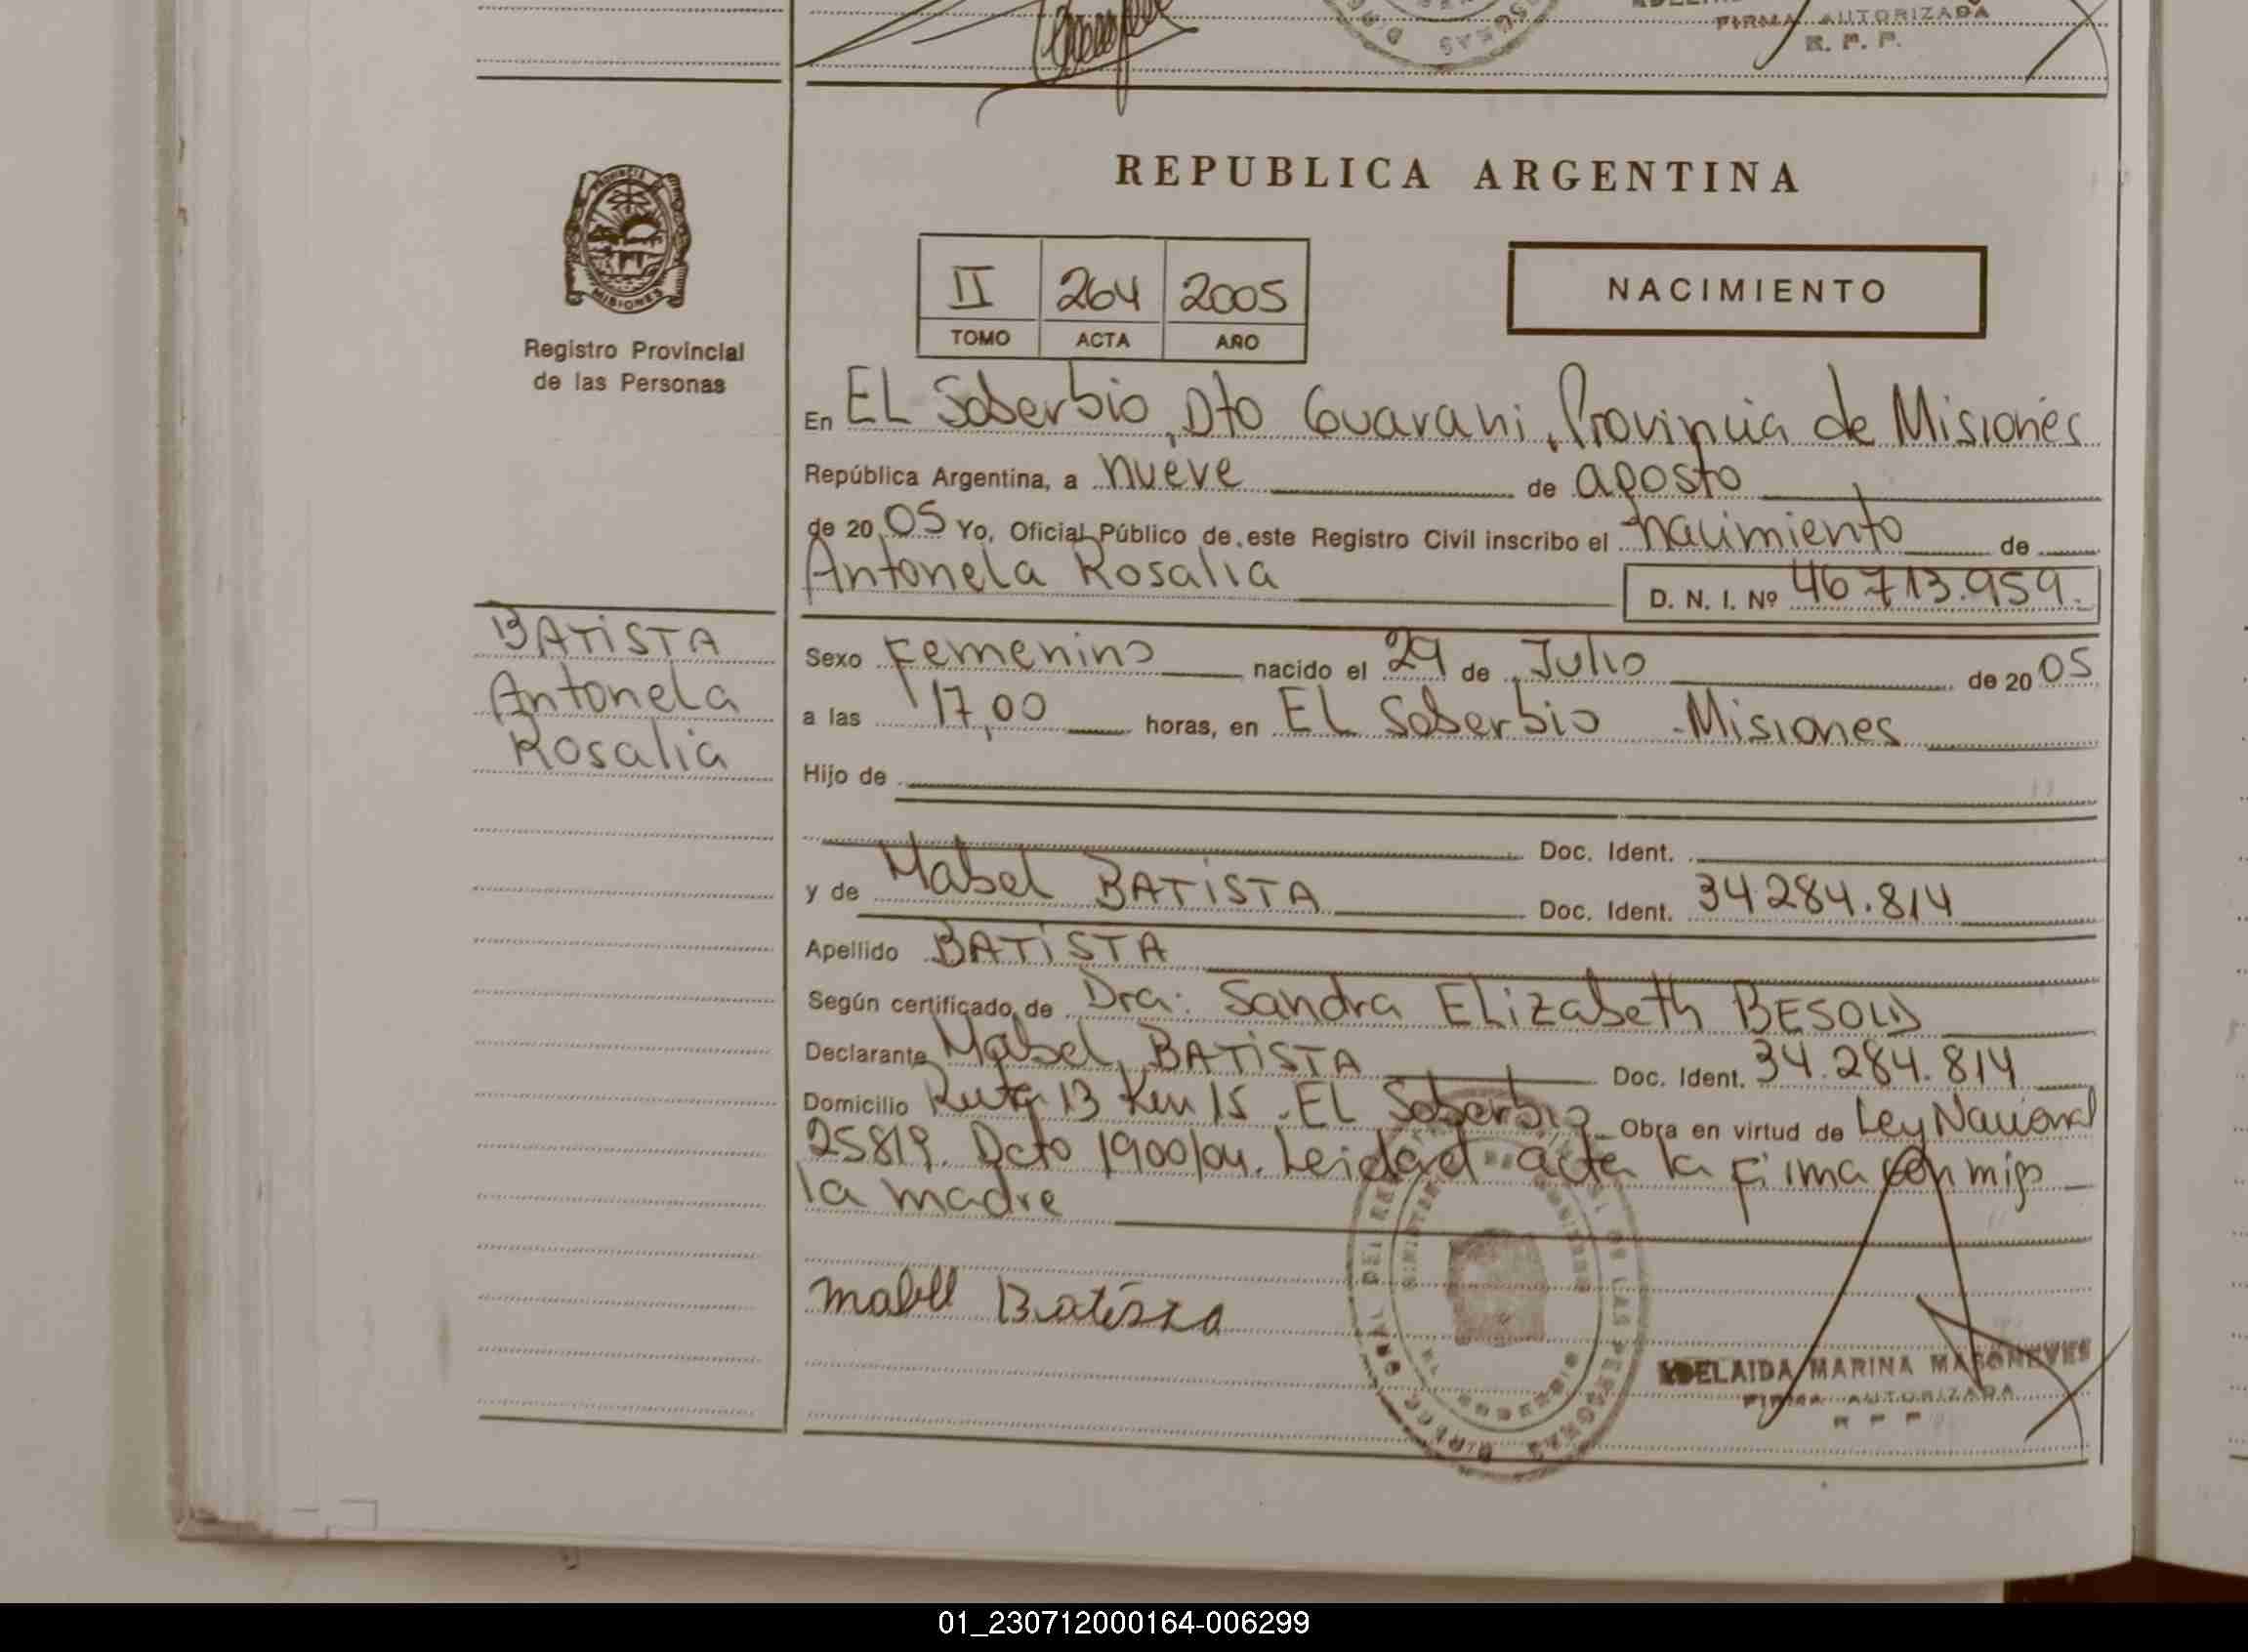 FIRMA AUTORIZADA
R. P. P.
PROVINCIA DE
MISIONES
Registro Provincial
de las Personas
REPUBLICA ARGENTINA
II 264 2005
TOMO ACTA AÑO
NACIMIENTO
En EL Soberbio, Dto Guarani, Provincia de Misiones
República Argentina, a nueve de agosto
de 20 05 Yo, Oficial Público de este Registro Civil inscribo el nacimiento de
Antonela Rosalia D. N. I. Nº 46713.959.
BATISTA
Antonela
Rosalia
Sexo Femenino nacido el 29 de Julio de 20 05
a las 17,00 horas, en EL Soberbio - Misiones
Hijo de
Doc. Ident.
y de Mabel BATISTA Doc. Ident. 34284.814
Apellido BATISTA
Según certificado de Dra: Sandra Elizabeth BESOLD
Declarante Mabel BATISTA Doc. Ident. 34.284.814
Domicilio Ruta 13 Km 15 - EL Soberbio - Obra en virtud de Ley Nacional
25819. Dcto 1900/04. Leida el acta la firma con migo
la madre
Mabel Batista
ADELAIDA MARINA MASONEVES
FIRMA AUTORIZADA
01_230712000164-006299